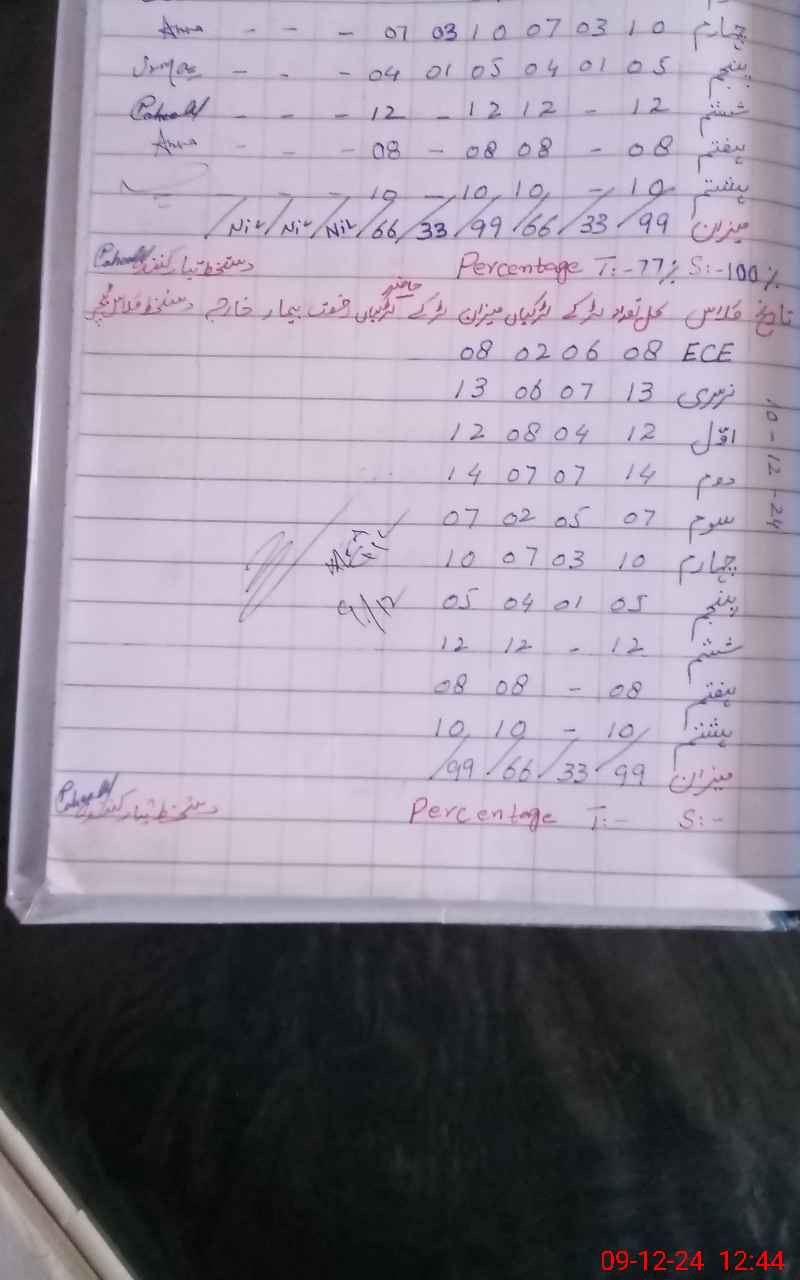 چہارم 10 03 07 10 03 07 - - - Amna
پنجم 05 01 04 05 01 04 - - -
ششم 12 - 12 12 - 12 - - -
ہفتم 08 - 08 08 - 08 - - - Amna
ہشتم 10 - 10 10 - 10 - - -
میزان 99 33 66 99 33 66 Nil Nil Nil
Percentage T:-77% S:-100% دستخط تیار کنندہ
حاضر
تاریخ کلاس کل تعداد لڑکے لڑکیاں میزان لڑکے لڑکیاں رخصت بیمار خارجہ دستخط کلاس ٹیچر
10-12-24
ECE 08 06 02 08
نرسری 13 07 06 13
اوّل 12 04 08 12
دوم 14 07 07 14
سوم 07 05 02 07
چہارم 10 03 07 10
پنجم 05 01 04 05
9/12
ششم 12 - 12 12
ہفتم 08 - 08 08
ہشتم 10 - 10 10
میزان 99 33 66 99
Percentage T:- S:- دستخط تیار کنندہ
09-12-24 12:44